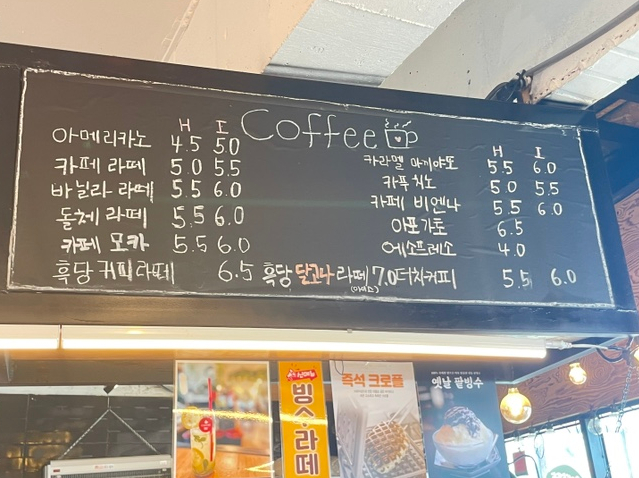 Coffee
H I
아메리카노 4.5 5.0
카페 라떼 5.0 5.5
바닐라 라떼 5.5 6.0
돌체 라떼 5.5 6.0
카페 모카 5.5 6.0
흑당 커피라떼 6.5
H I
카라멜 마끼야또 5.5 6.0
카푸치노 5.0 5.5
카페 비엔나 5.5 6.0
아포가토 6.5
에소프레소 4.0
흑당 달고나 라떼 7.0
(아이스)
더치커피 5.5 6.0
빙수·라떼
즉석 크로플
옛날 팥빙수